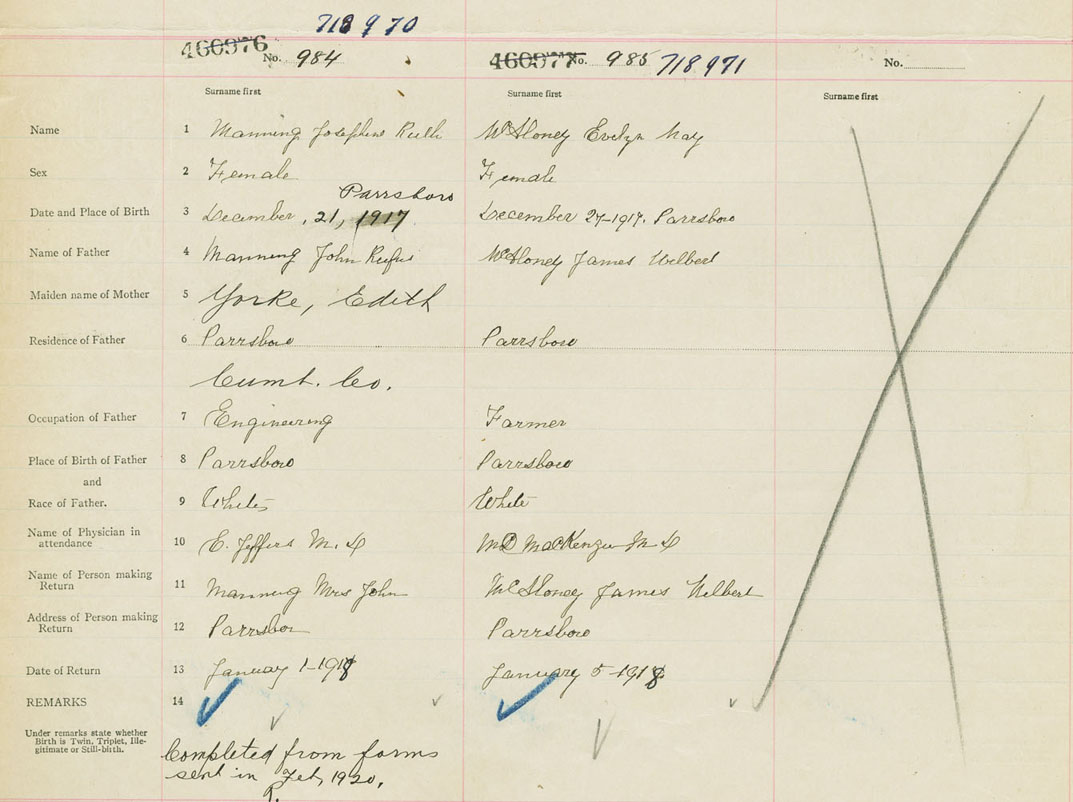 718970
460976 No. 984 460977 No. 985 718971 No.
Surname first Surname first Surname first
Name 1 Manning Josephine Ruth Evelyn May
Sex 2 Female Female
Parrsboro
Date and Place of Birth 3 December, 21, 1917 December 27-1917. Parrsboro
Name of Father 4 Manning John Rufus James Welbert
Maiden name of Mother 5 Yorke, Edith
Residence of Father 6 Parrsboro Parrsboro
Cumb. Co.
Occupation of Father 7 Engineering Farmer
Place of Birth of Father 8 Parrsboro Parrsboro
and
Race of Father. 9 White White
Name of Physician in
attendance 10 E. Jeffers M. D MacKenzie M D
Name of Person making
Return 11 Manning Mrs John James Welbert
Address of Person making
Return 12 Parrsboro Parrsboro
Date of Return 13 January 1-1918 January 5-1918
REMARKS 14
Under remarks state whether
Birth is Twin, Triplet, Ille-
gitimate or Still-birth.
Completed from forms
sent in Feb, 1920.